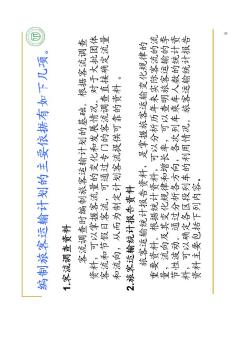 编制旅客运输计划的主要依据有如下几项。
1.客流调查资料
客流调查时编制旅客运输计划的基础，根据客流调查
资料，可以掌握客流量的变化和发展情况。对于大批团体
客流和节假日客流，可通过专门的客流调查直接确定流量
和流向，从而为制定计划客流提供可靠的资料。
2.旅客运输统计报告资料
旅客运输统计报告资料，是掌握旅客运输变化规律的
重要资料。根据统计资料，可以分析历年来实际客流的流
量、流向及其变化规律和增长率，可以查明旅客运输的季
节性波动。通过分析各方向、各次列车乘车人数的统计资
料，可以确定各区段列车的利用情况。旅客运输统计报告
资料主要包括下列内容。